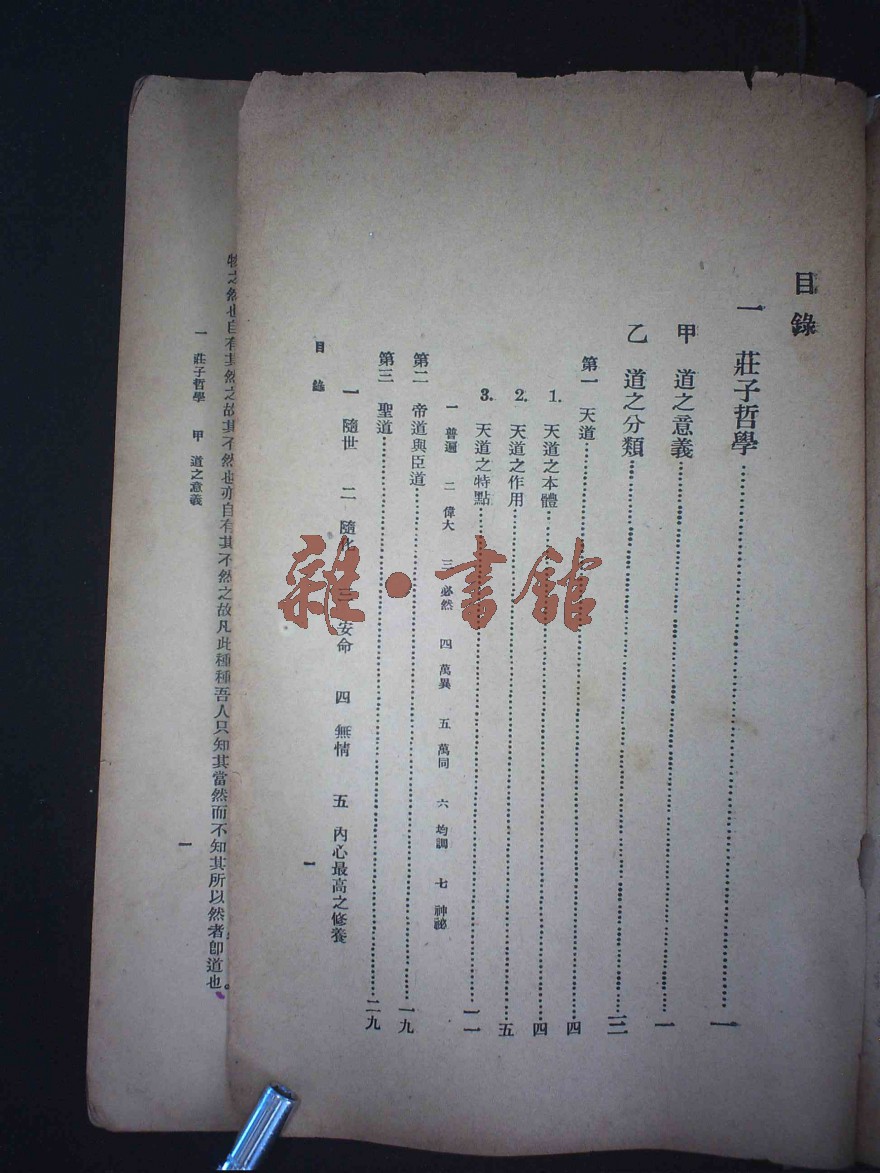 目錄
一 莊子哲學……一
甲 道之意義……一
乙 道之分類……三
第一 天道……四
1. 天道之本體……四
2. 天道之作用……五
3. 天道之特點……一一
一 普遍 二 偉大 三 必然 四 萬異 五 萬同 六 均調 七 神祕
第二 帝道與臣道……一九
第三 聖道……二九
一 隨世 二 隨化 三 安命 四 無情 五 內心最高之修養
目錄
一
物之然也自有其然之故其不然也亦自有其不然之故凡此種種吾人只知其當然而不知其所以然者卽道也。
一 莊子哲學 甲 道之意義
一
雜·書館